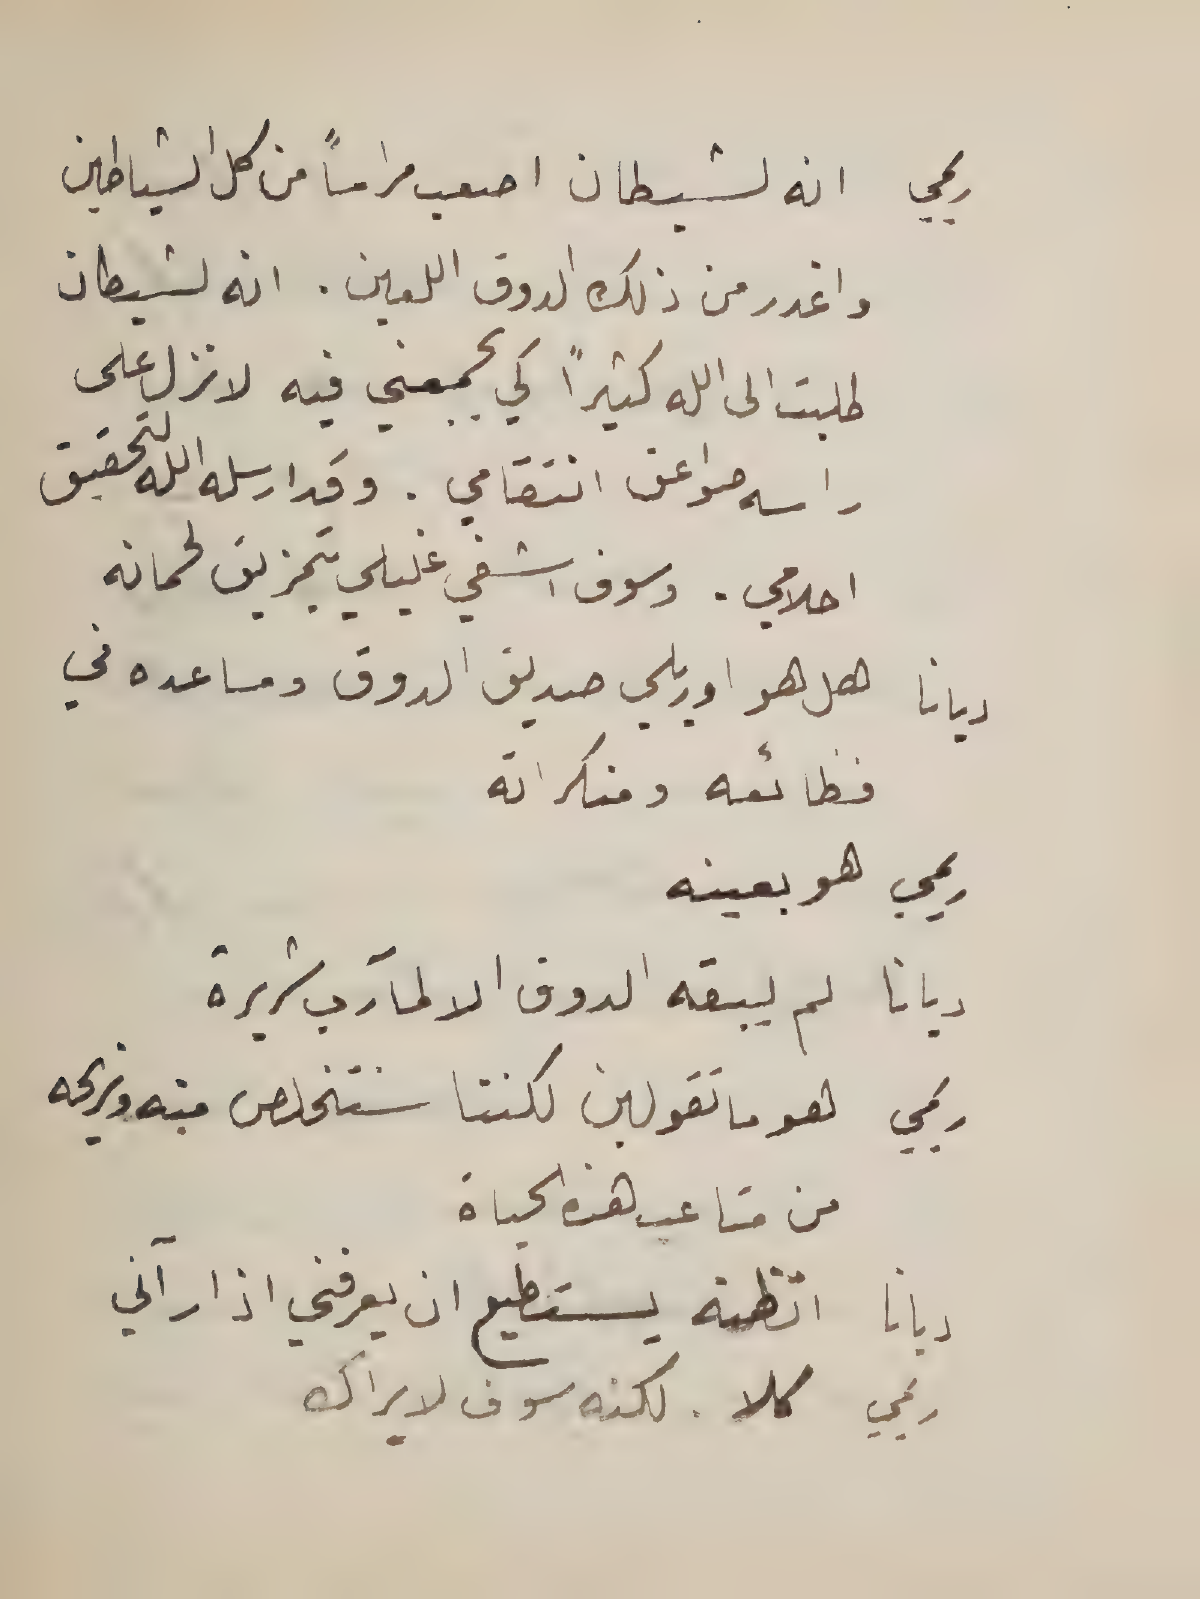 ريمي انه لشيطان اصعب مراساً من كل الشياطين
واغدر من ذلك الدوق اللعين . انه لشيطان
طلبت الى الله كثيراً كي يجمعني فيه لانزل على
راسه صواعق انتقامي . وقد ارسله الله لتحقيق
احلامي . وسوف اشفي غليلي بتمزيق لحمانه
ديانا هل هو اوريلي صديق الدوق ومساعده في
فظائعه ومنكراته
ريمي هو بعينه
ديانا لم يبقه الدوق الا لمآرب شريرة
ريمي هو ما تقولين لكننا سنتخلص منه ونريحه
من متاعب هذه الحياة
ديانا اتظنه يستطيع ان يعرفني اذا رآني
ريمي كلا . لكنه سوف لا يراك